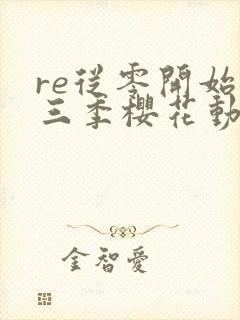 re従零開始
三季櫻花動
金智愛